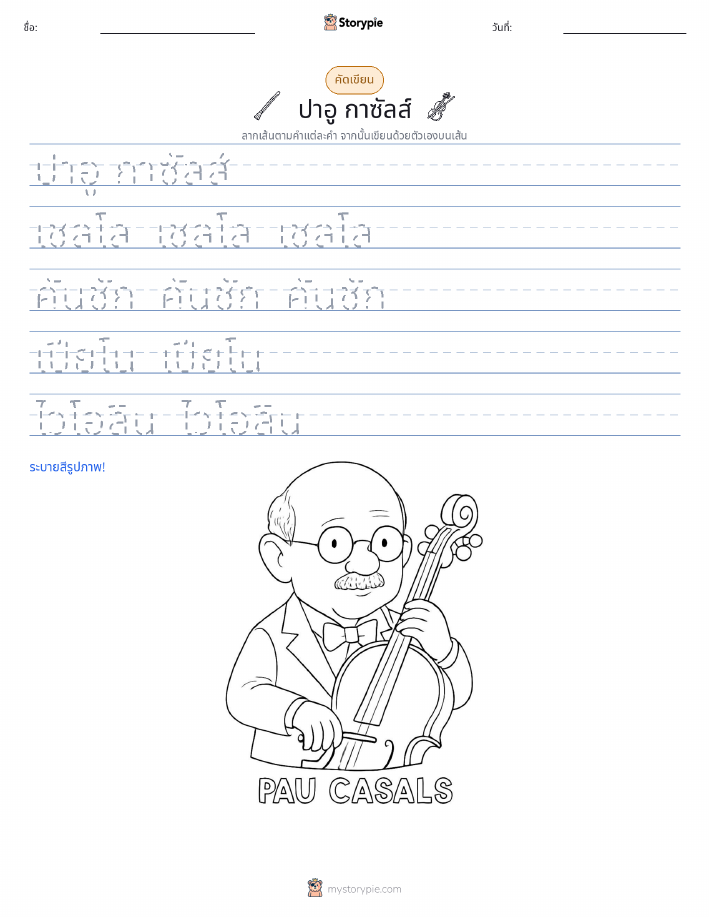 ชื่อ:
Storypie
วันที่:
คัดเขียน
ปาอู กาซัลส์
ลากเส้นตามคำแต่ละคำ จากนั้นเขียนด้วยตัวเองบนเส้น
ปาอู กาซัลส์
เชลโล เชลโล เชลโล
คันชัก คันชัก คันชัก
เปียโน เปียโน
ไวโอลิน ไวโอลิน
ระบายสีรูปภาพ!
PAU CASALS
mystorypie.com